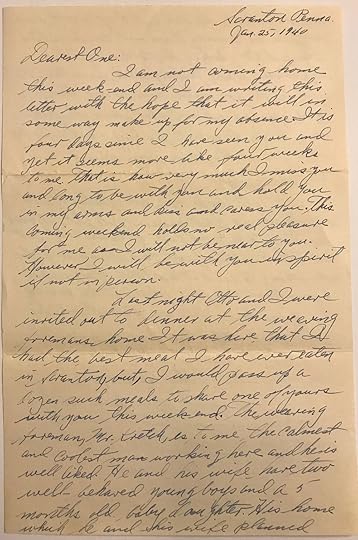 Scranton Penna.
Jan. 25, 1940
Dearest One:
I am not coming home
this week-end and I am writing this
letter with the hope that it will in
some way make up for my absence. It is
four days since I have seen you and
yet it seems more like four weeks
to me. That is how very much I miss you
and long to be with you and hold you
in my arms and kiss and caress you. This
coming weekend holds no real pleasure
for me as I will not be near to you.
However I will be with you in spirit
if not in person.
Last night Otto and I were
invited out to dinner at the weaving
foremans home. It was here that I
had the best meal I have ever eaten
in Scranton, but, I would pass up a
dozen such meals to share one of yours
with you this week end. The weaving
foreman, Mr. is to me the calmest
and coolest man working here and he is
well liked. He and his wife have two
well-behaved young boys and a 5
months old baby daughter. His home
which he and his wife planned